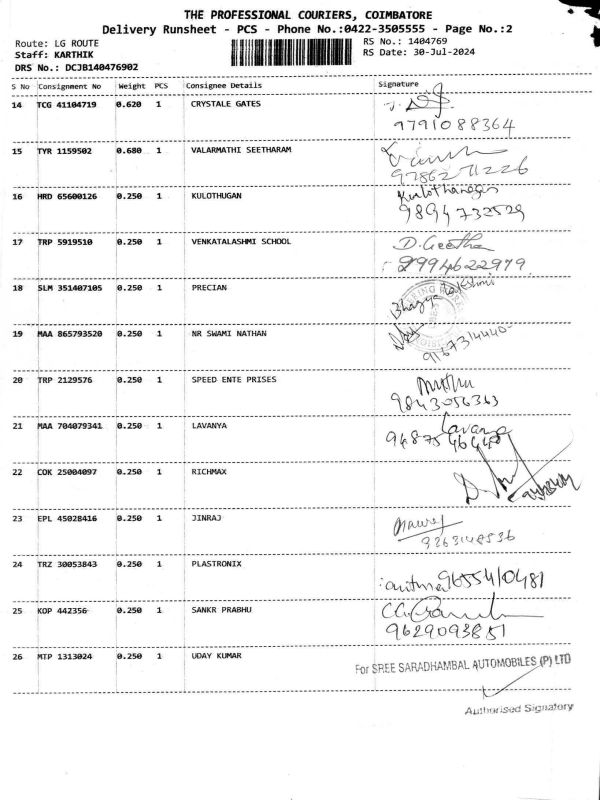 THE PROFESSIONAL COURIERS, COIMBATORE
Delivery Runsheet - PCS - Phone No.:0422-3505555 - Page No.:2
Route: LG ROUTE RS No.: 1404769
Staff: KARTHIK RS Date: 30-Jul-2024
DRS No.: DCJB140476902
S No Consignment No Weight PCS Consignee Details Signature
14 TCG 41104719 0.620 1 CRYSTALE GATES
9791088364
15 TYR 1159502 0.680 1 VALARMATHI SEETHARAM
9786271226
16 HRD 65600126 0.250 1 KULOTHUGAN Kulothungan
9894732529
17 TRP 5919510 0.250 1 VENKATALASHMI SCHOOL D. Geetha
9994622979
18 SLM 351407105 0.250 1 PRECIAN Bhagya Lakshmi
19 MAA 865793520 0.250 1 NR SWAMI NATHAN
9167314440
20 TRP 2129576 0.250 1 SPEED ENTE PRISES
9843056363
21 MAA 704079341 0.250 1 LAVANYA Lavanya
22 COK 25004097 0.250 1 RICHMAX
23 EPL 45028416 0.250 1 JINRAJ
9363148536
24 TRZ 30053843 0.250 1 PLASTRONIX 9655410481
25 KOP 442356 0.250 1 SANKR PRABHU
9629093851
26 MTP 1313024 0.250 1 UDAY KUMAR
For SREE SARADHAMBAL AUTOMOBILES (P) LTD
Authorised Signatory